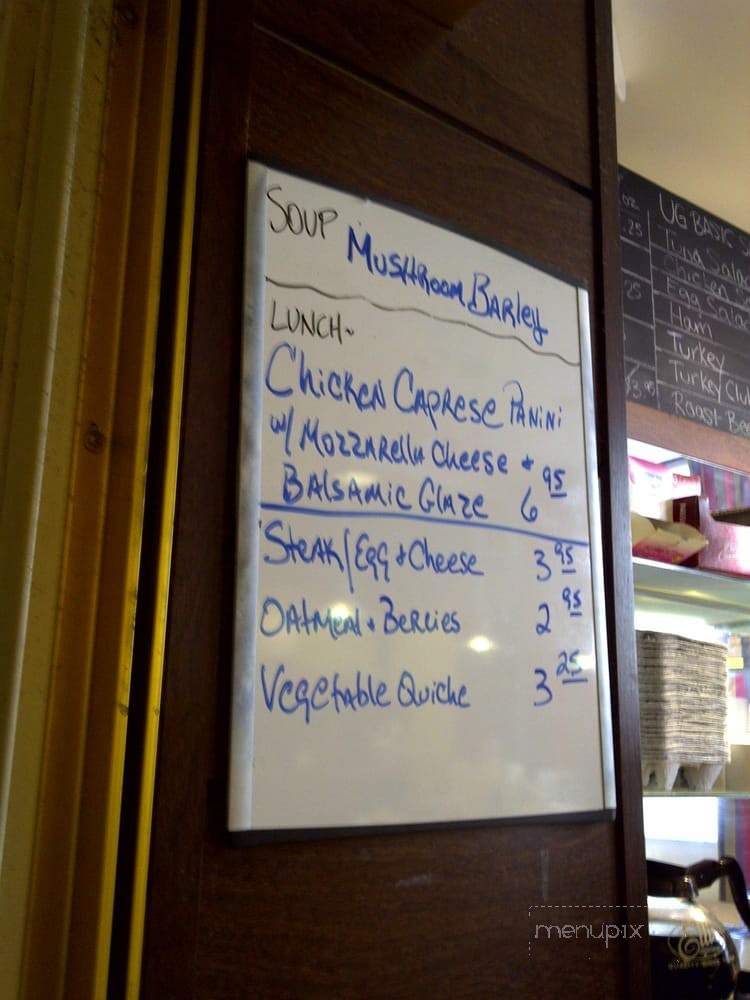 SOUP
MUSHROOM BARLEY
LUNCH~
CHICKEN CAPRESE PANINI
w/ MOZZARELLA CHEESE +
BALSAMIC GLAZE 6 95
STEAK/EGG + CHEESE 3 95
OATMEAL + BERRIES 2 95
VEGETABLE QUICHE 3 25
UG BASIC
Tuna Salad
Chicken
Egg Salad
Ham
Turkey
Turkey Club
Roast Beef
oz
.25
25
menupix